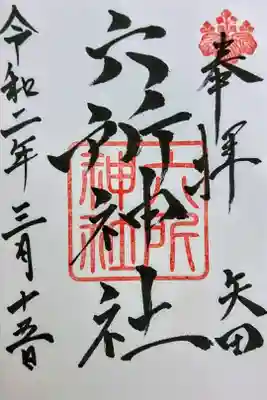 奉拝
矢田
六所神社
六所神社
令和二年三月十五日